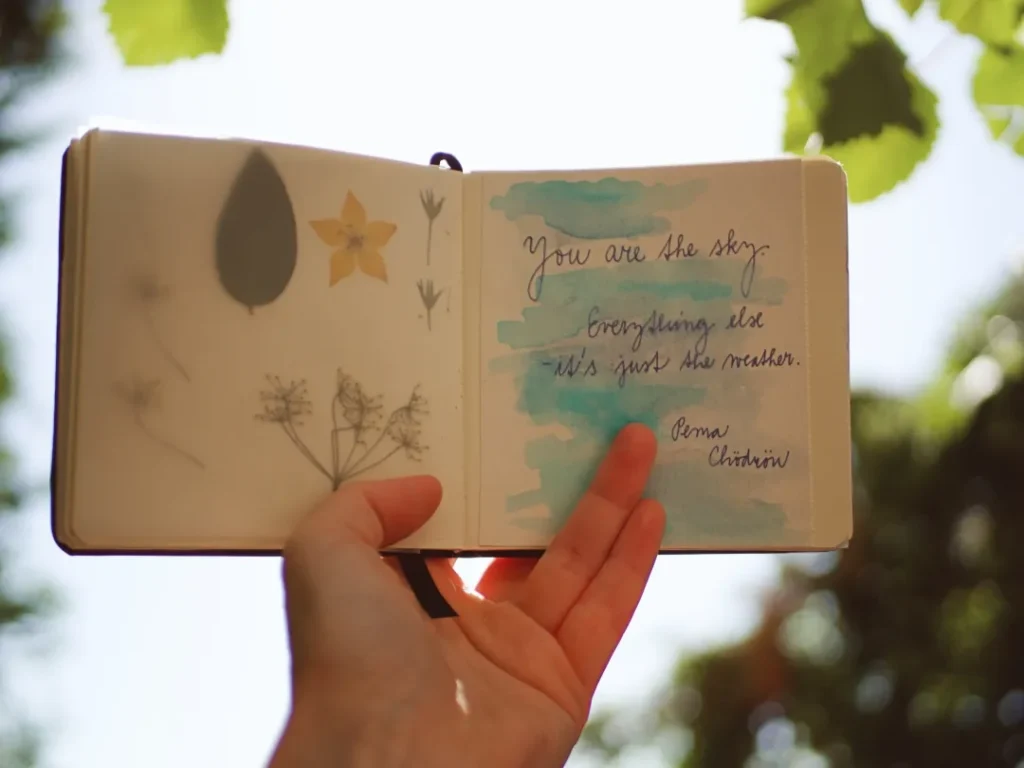 You are the sky.
Everything else
-it's just the weather.
Pema
Chödrön